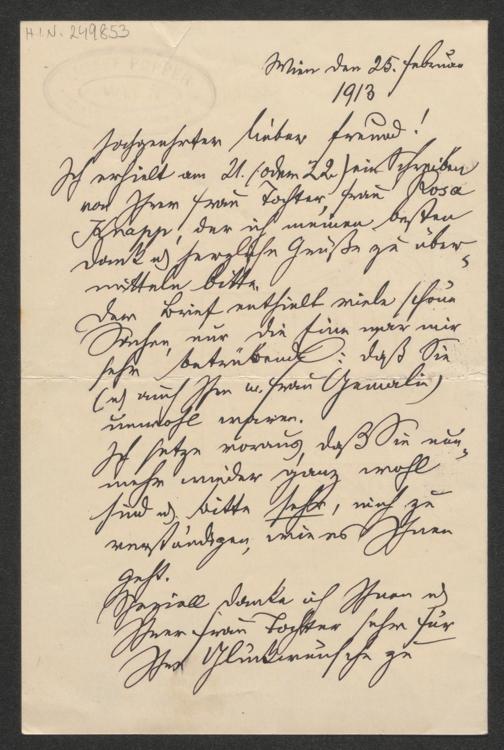 H.I.N. 249853
Wien den 25. Februar
1913
Hochgeehrter lieber Freund!
Ich erhielt am 21. (oder 22.) ein Schreiben
von Ihrer Frau Tochter, Frau Rosa
Knapp, der ich meinen besten
Dank u herzliche Grüße zu über-
mitteln bitte.
Der Brief enthielt viele schöne
Sachen, nur die Eine war mir
sehr betrübend: daß Sie
(u auch Ihre w. Frau Gemalin)
unwohl waren.
Ich setze voraus, daß Sie nun-
mehr wieder ganz wohl
sind u bitte sehr, mich zu
verständigen, wie es Ihnen
geht.
Speziell danke ich Ihnen u
Ihrer Frau Tochter sehr für
Ihre Glückwünsche zu